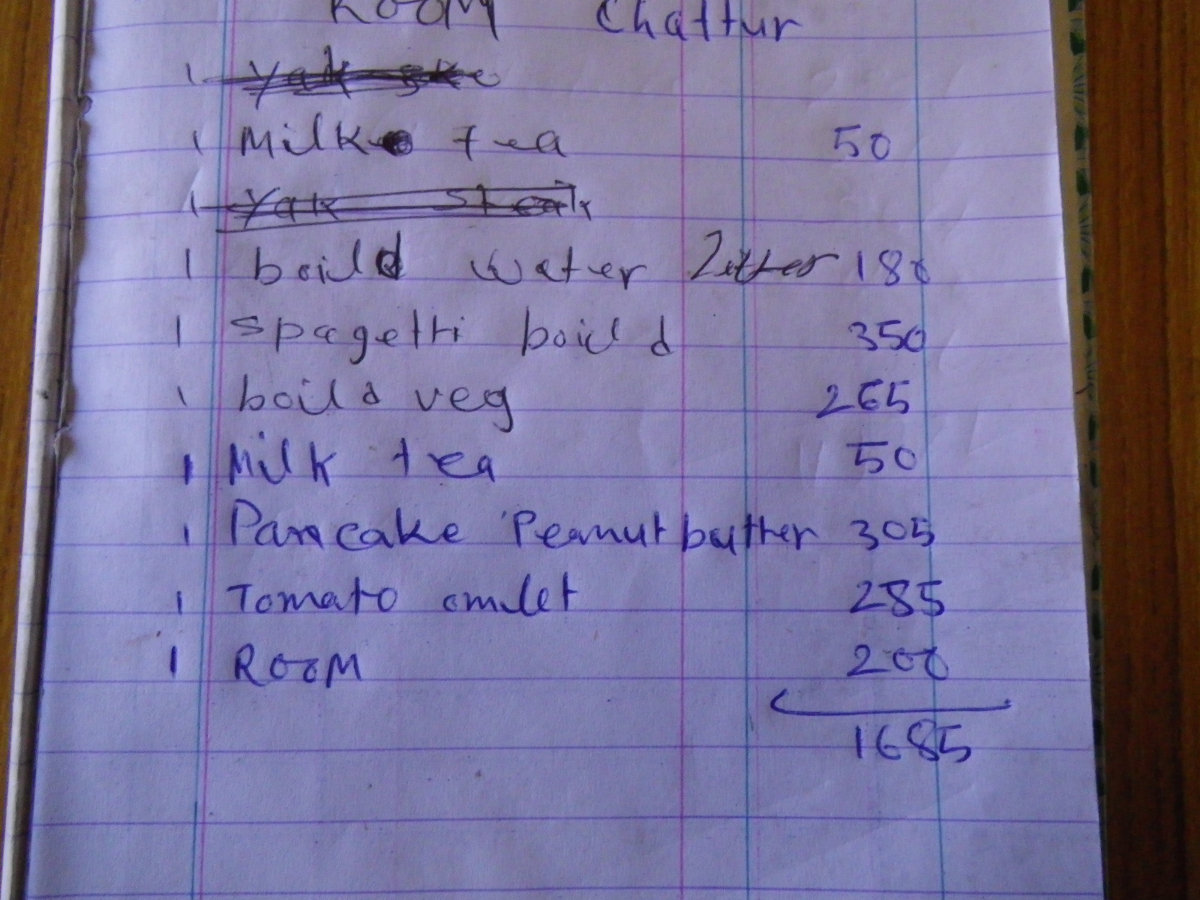 ROOM Chattur
1 Yak
1 Milk tea 50
1 Yak Steak
1 boild water 2 litter 180
1 spagetti boild 350
1 boild veg 265
1 Milk tea 50
1 Pancake Peanut butter 305
1 Tomato omlet 285
1 ROOM 200
1685